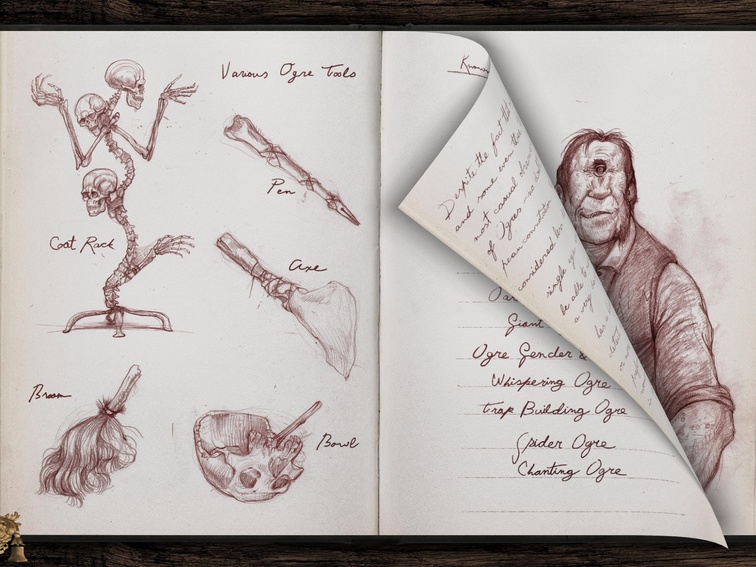 Various Ogre Tools
Pen
Coat Rack
Axe
Broom
Bowl
Despite the fact
and some even the
most casual
of Ogres
considered
single
be able
a very
Giant
Ogre Gender &
Whispering Ogre
Trap Building Ogre
Spider Ogre
Chanting Ogre